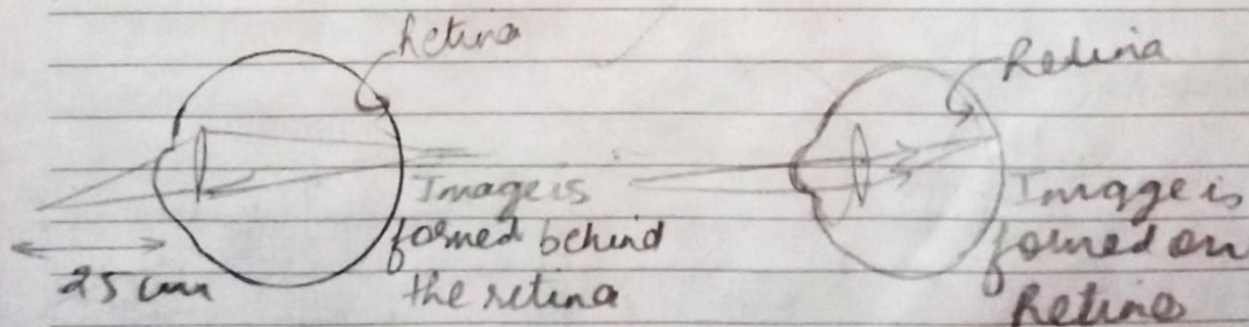 Retina
Retina
Image is
formed behind
the retina
25 cm
Image is
formed on
Retina